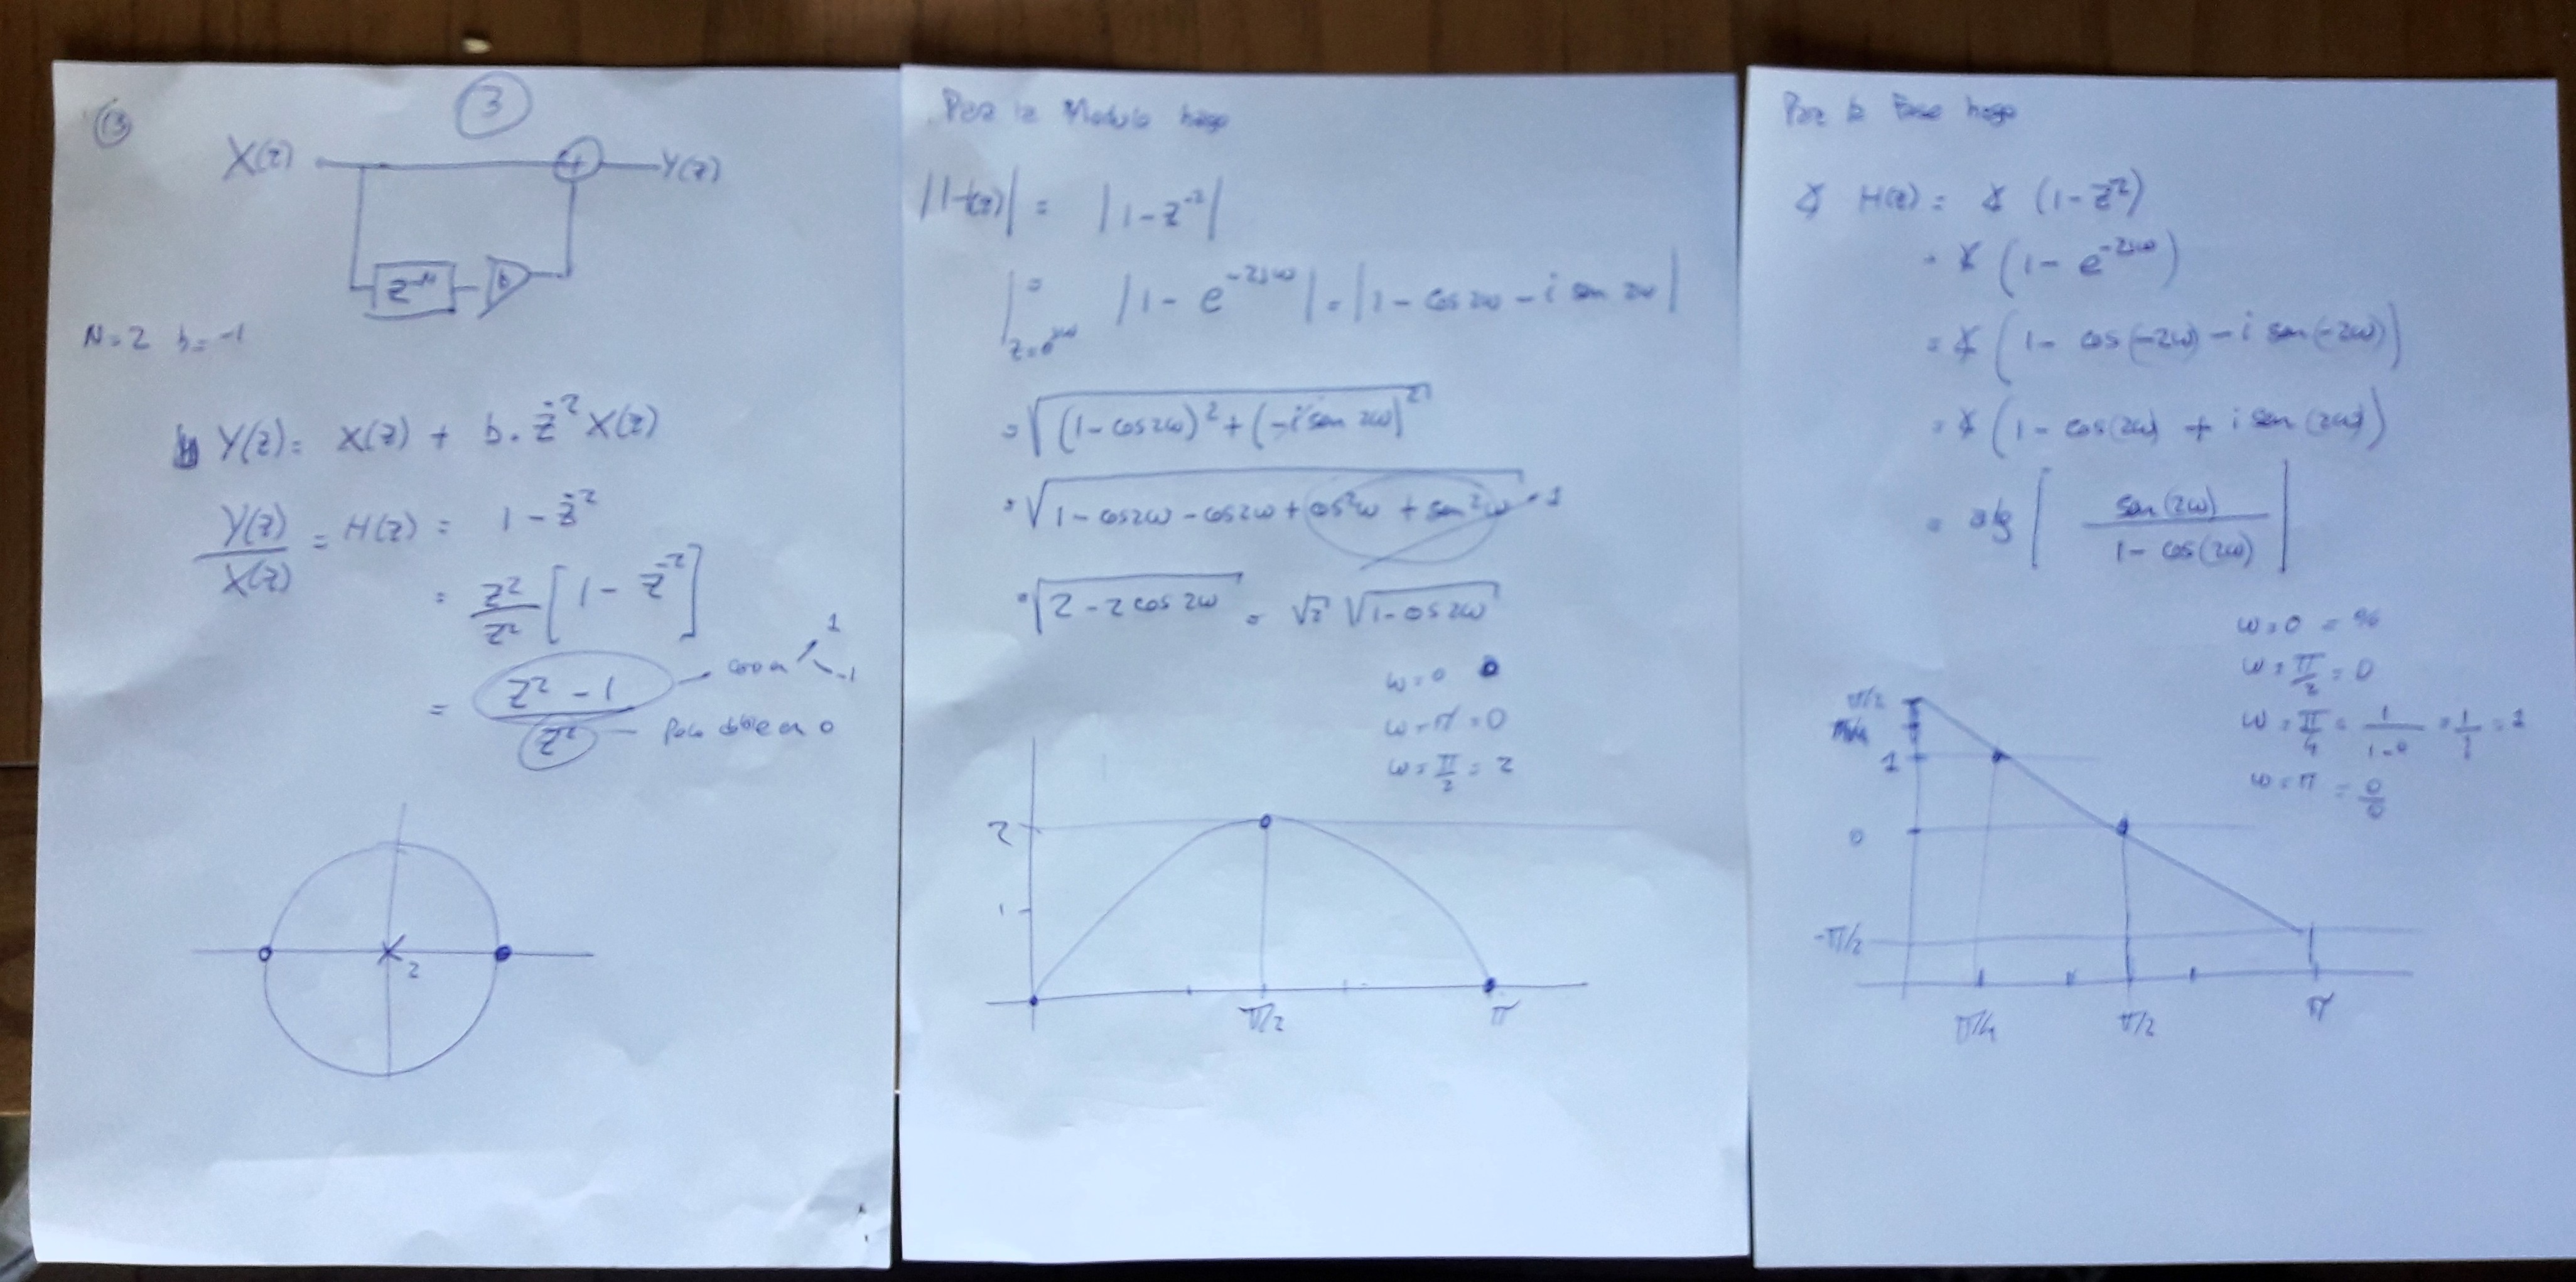 13
3
X(z) + Y(z)
z^-N b
N=2 b=-1
Y(z)= X(z) + b. z^-2 X(z)
Y(z)/X(z) = H(z) = 1 - z^-2
= z^2/z^2 [1 - z^-2]
= (z^2 - 1)/z^2
1
-1
Polo doble en 0
2
Para la Modulo hago
|H(z)| = |1 - z^-2|
|z=e^jω = |1 - e^-2jω| = |1 - cos 2ω - i sen 2ω|
= √((1 - cos 2ω)^2 + (-i sen 2ω)^2)
= √(1 - cos 2ω - cos 2ω + cos^2 ω + sen^2 ω) 1
= √(2 - 2 cos 2ω) = √2 √(1 - cos 2ω)
ω=0 0
ω=π=0
ω=π/2=2
2
1
π/2 π
Para la Fase hago
∡ H(z) = ∡ (1 - z^-2)
= ∡ (1 - e^-2jω)
= ∡ (1 - cos(-2ω) - i sen(-2ω))
= ∡ (1 - cos(2ω) + i sen(2ω))
= atg [sen(2ω)/(1 - cos(2ω))]
ω=0 = 0/0
ω=π/2=0
ω=π/4=1/(1-0)=1/1=1
ω=π=0/0
π/2
π/4
1
0
-π/2
π/4 π/2 π